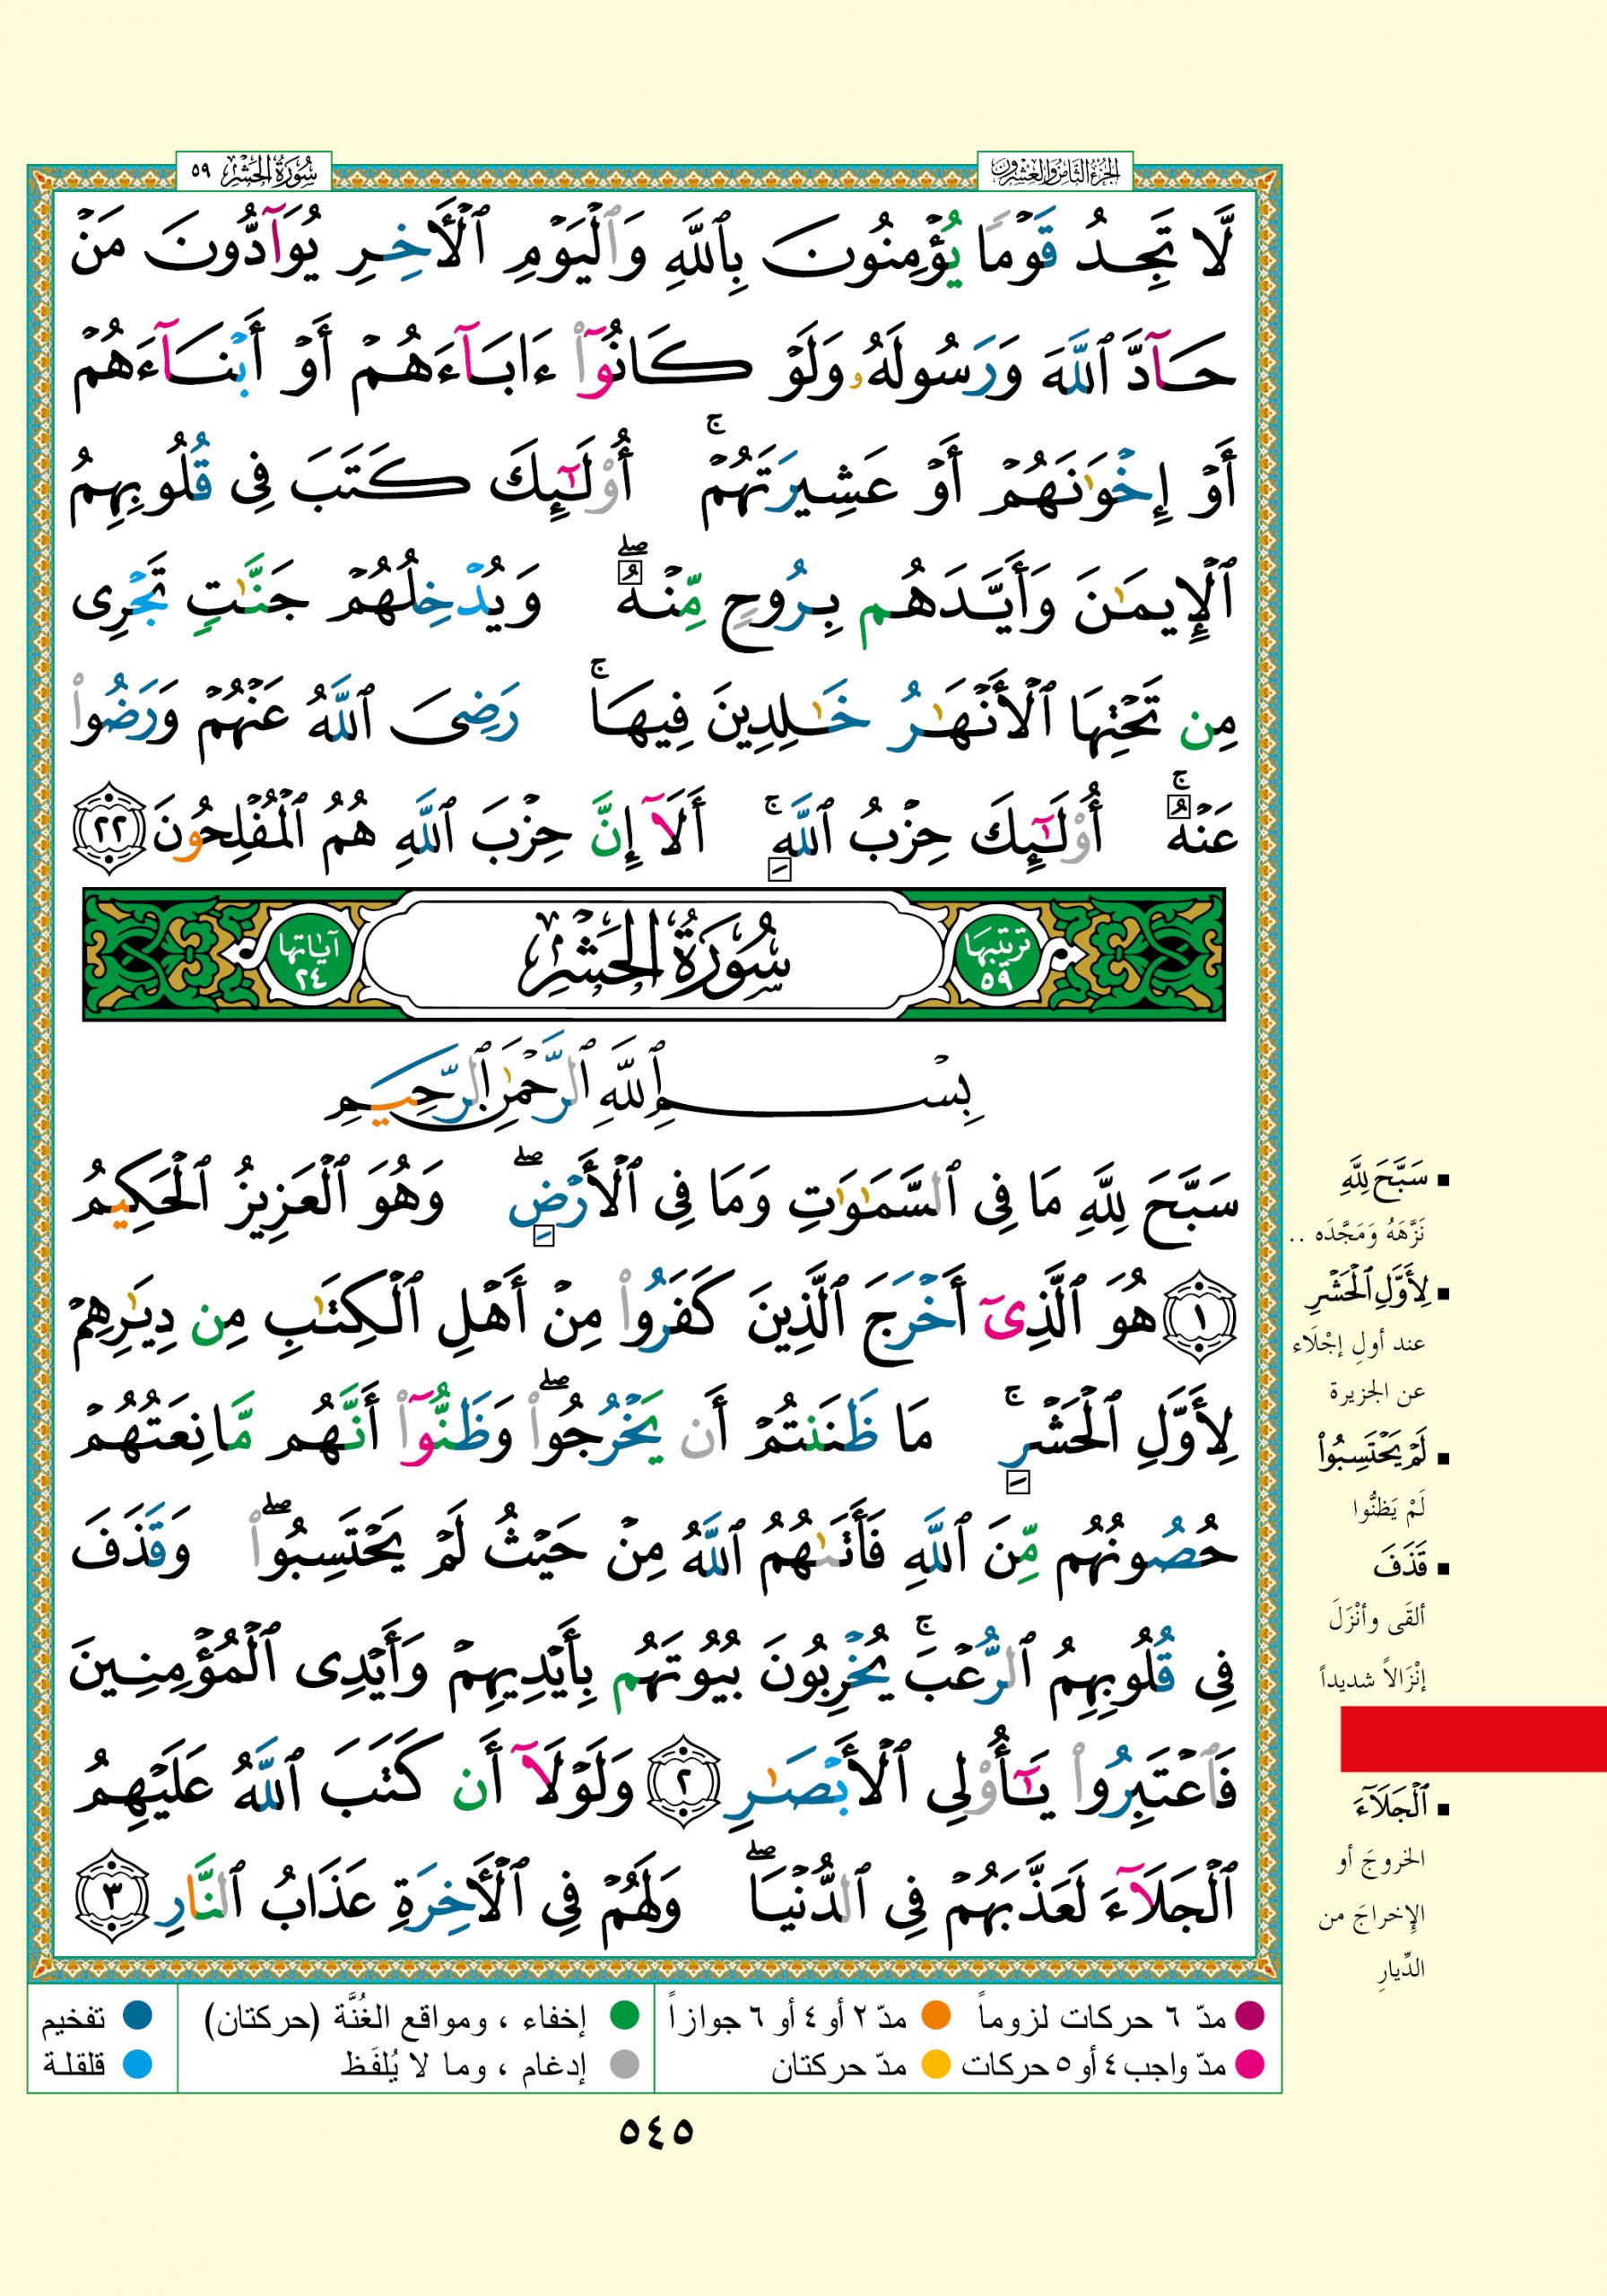 الجزء الثامن والعشرون
سورة الحشر ٥٩
لَّا تَجِدُ قَوْمًا يُؤْمِنُونَ بِٱللَّهِ وَٱلْيَوْمِ ٱلْأَخِرِ يُوَآدُّونَ مَنْ
حَآدَّ ٱللَّهَ وَرَسُولَهُۥ وَلَوْ كَانُوٓا۟ ءَابَآءَهُمْ أَوْ أَبْنَآءَهُمْ
أَوْ إِخْوَٰنَهُمْ أَوْ عَشِيرَتَهُمْ ۚ أُو۟لَٰٓئِكَ كَتَبَ فِى قُلُوبِهِمُ
ٱلْإِيمَٰنَ وَأَيَّدَهُم بِرُوحٍ مِّنْهُ ۖ وَيُدْخِلُهُمْ جَنَّٰتٍ تَجْرِى
مِن تَحْتِهَا ٱلْأَنْهَٰرُ خَٰلِدِينَ فِيهَا ۚ رَضِىَ ٱللَّهُ عَنْهُمْ وَرَضُوا۟
عَنْهُ ۚ أُو۟لَٰٓئِكَ حِزْبُ ٱللَّهِ ۚ أَلَآ إِنَّ حِزْبَ ٱللَّهِ هُمُ ٱلْمُفْلِحُونَ ٢٢
ترتيبها ٥٩ سُورَةُ الحَشْرِ آياتها ٢٤
بِسْمِ ٱللَّهِ ٱلرَّحْمَٰنِ ٱلرَّحِيمِ
سَبَّحَ لِلَّهِ مَا فِى ٱلسَّمَٰوَٰتِ وَمَا فِى ٱلْأَرْضِ ۖ وَهُوَ ٱلْعَزِيزُ ٱلْحَكِيمُ
١ هُوَ ٱلَّذِىٓ أَخْرَجَ ٱلَّذِينَ كَفَرُوا۟ مِنْ أَهْلِ ٱلْكِتَٰبِ مِن دِيَٰرِهِمْ
لِأَوَّلِ ٱلْحَشْرِ ۚ مَا ظَنَنتُمْ أَن يَخْرُجُوا۟ ۖ وَظَنُّوٓا۟ أَنَّهُم مَّانِعَتُهُمْ
حُصُونُهُم مِّنَ ٱللَّهِ فَأَتَىٰهُمُ ٱللَّهُ مِنْ حَيْثُ لَمْ يَحْتَسِبُوا۟ ۖ وَقَذَفَ
فِى قُلُوبِهِمُ ٱلرُّعْبَ ۚ يُخْرِبُونَ بُيُوتَهُم بِأَيْدِيهِمْ وَأَيْدِى ٱلْمُؤْمِنِينَ
فَٱعْتَبِرُوا۟ يَٰٓأُو۟لِى ٱلْأَبْصَٰرِ ٢ وَلَوْلَآ أَن كَتَبَ ٱللَّهُ عَلَيْهِمُ
ٱلْجَلَآءَ لَعَذَّبَهُمْ فِى ٱلدُّنْيَا ۖ وَلَهُمْ فِى ٱلْأَخِرَةِ عَذَابُ ٱلنَّارِ ٣
▪ سَبَّحَ لِلَّهِ
نَزَّهَهُ وَمَجَّدَه ..
▪ لِأَوَّلِ ٱلْحَشْرِ
عند أولِ إجْلَاء
عن الجزيرة
▪ لَمْ يَحْتَسِبُوا۟
لَمْ يَظنُّوا
▪ قَذَفَ
ألقَى وأنْزَلَ
إنْزَالاً شديداً
▪ ٱلْجَلَآءَ
الخروجَ أو
الإخراجَ من
الدِّيارِ
مدّ ٦ حركات لزوماً مدّ ٢ أو ٤ أو ٦ جوازاً إخفاء ، ومواقع الغُنَّة (حركتان) تفخيم
مدّ واجب ٤ أو ٥ حركات مدّ حركتان إدغام ، وما لا يُلفَظ قلقلة
٥٤٥